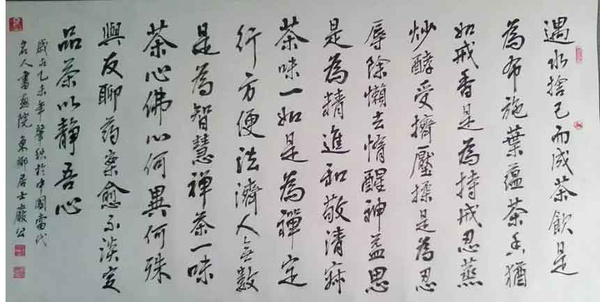 遇水捨己而成茶飲是
為布施葉蘊茶香猶
如戒香是為持戒忍蒸
炒酵受擠壓揉是為忍
辱除懶去惰醒神益思
是為精進和敬清寂
茶味一如是為禪定
行方便法濟人無數
是為智慧禪茶一味
茶心佛心何異何殊
與友聊药案愈不淡
品茶以静吾心
歲在乙未年肇秋於中國當代
名人書畫院東居士嚴公